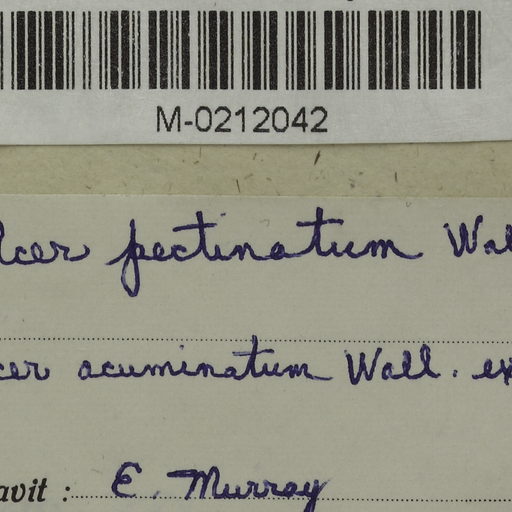 M-0212042
Acer pectinatum Wal
cer acuminatum Wall. ex
avit : E. Murray